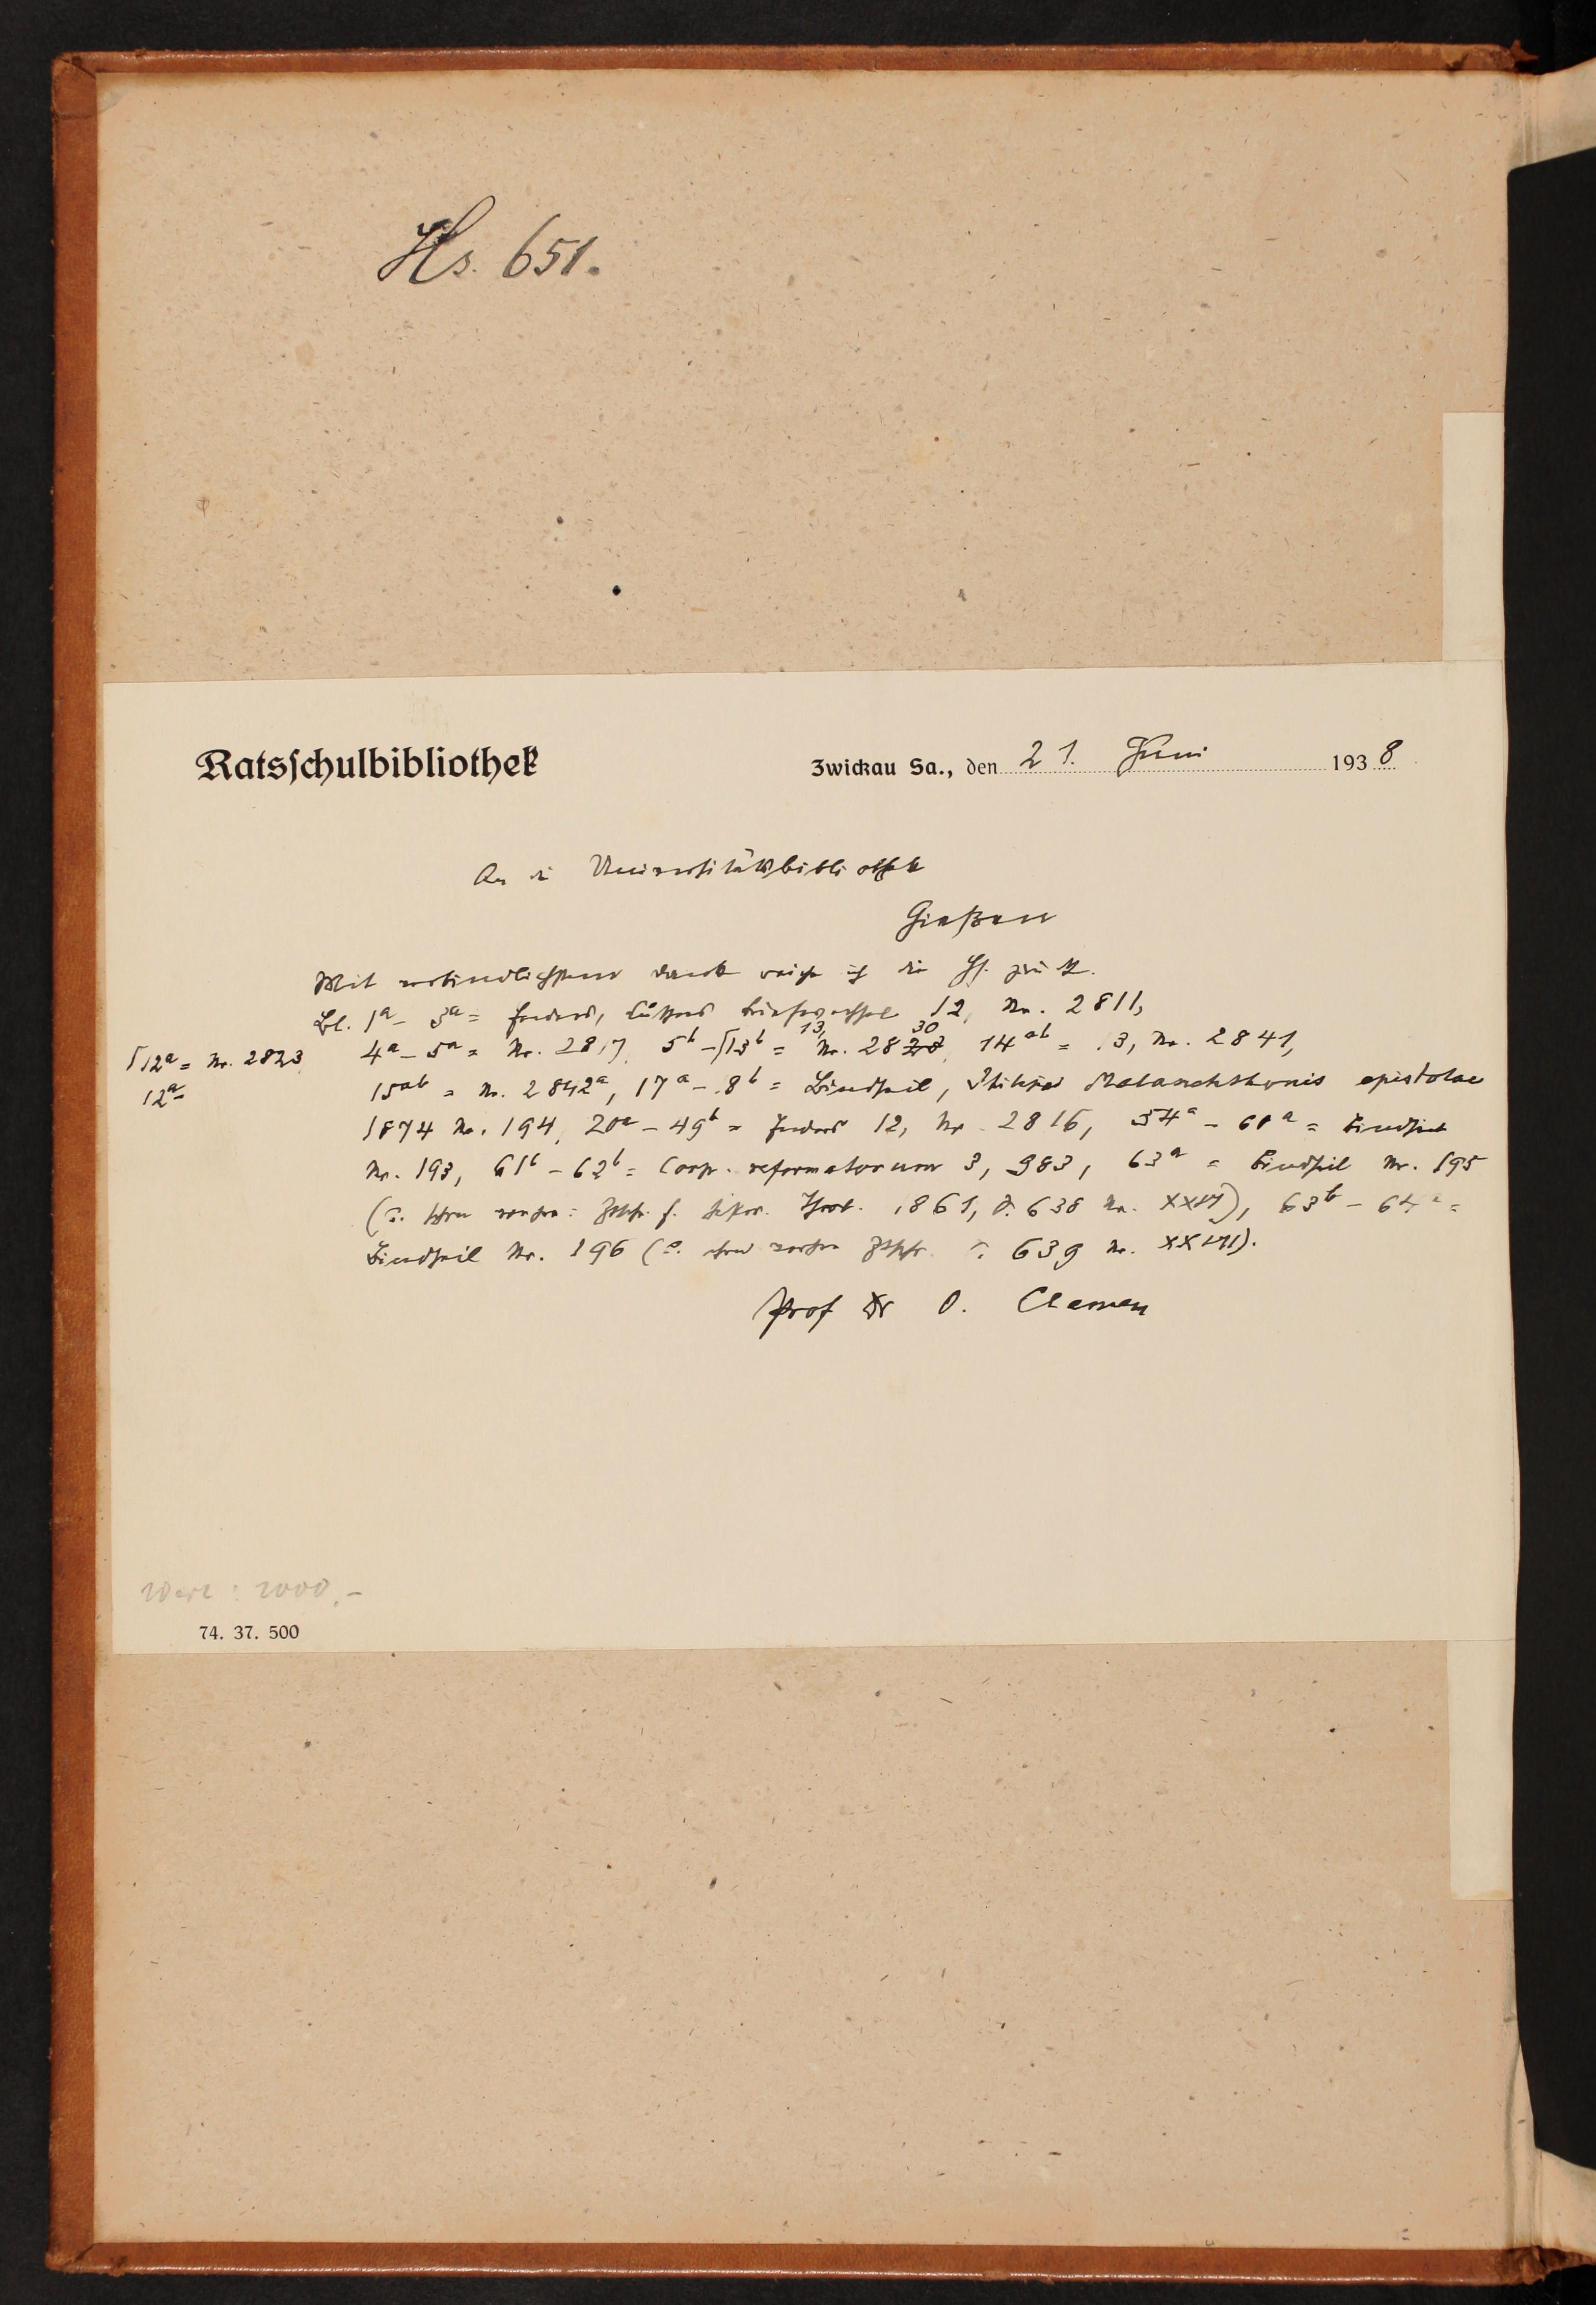 Hs. 651.
Ratsschulbibliothek
Zwickau Sa., den 21. Juni 1938
An die Universitätsbibliothek
Gießen
Mit verbindlichstem Dank reiche ich die Hs. zurück.
Bl. 1a - 3a = Enders, Luthers Briefwechsel 12, Nr. 2811,
4a - 5a = Nr. 2817, 5b - ⌈13b = 13, Nr. 2828 30, 14ab = 13, Nr. 2841,
⌈12a = Nr. 2823,
12a
15ab = Nr. 2842a, 17a - 18b = Bindseil, Philippi Melanchthonis epistolae
1874 Nr. 194, 20a - 49b = Enders 12, Nr. 2816, 54a - 60a = Bindseil
Nr. 193, 61b - 62b = Corp. reformatorum 3, 983, 63a = Bindseil Nr. 195
(s. schon vorher: Ztschr. f. histor. Theol. 1861, S. 638 Nr. XXVI), 63b - 64a =
Bindseil Nr. 196 (s. schon vorher Ztschr. S. 639 Nr. XXVII).
Prof Dr O. Clemen
Wert: 2000.-
74. 37. 500